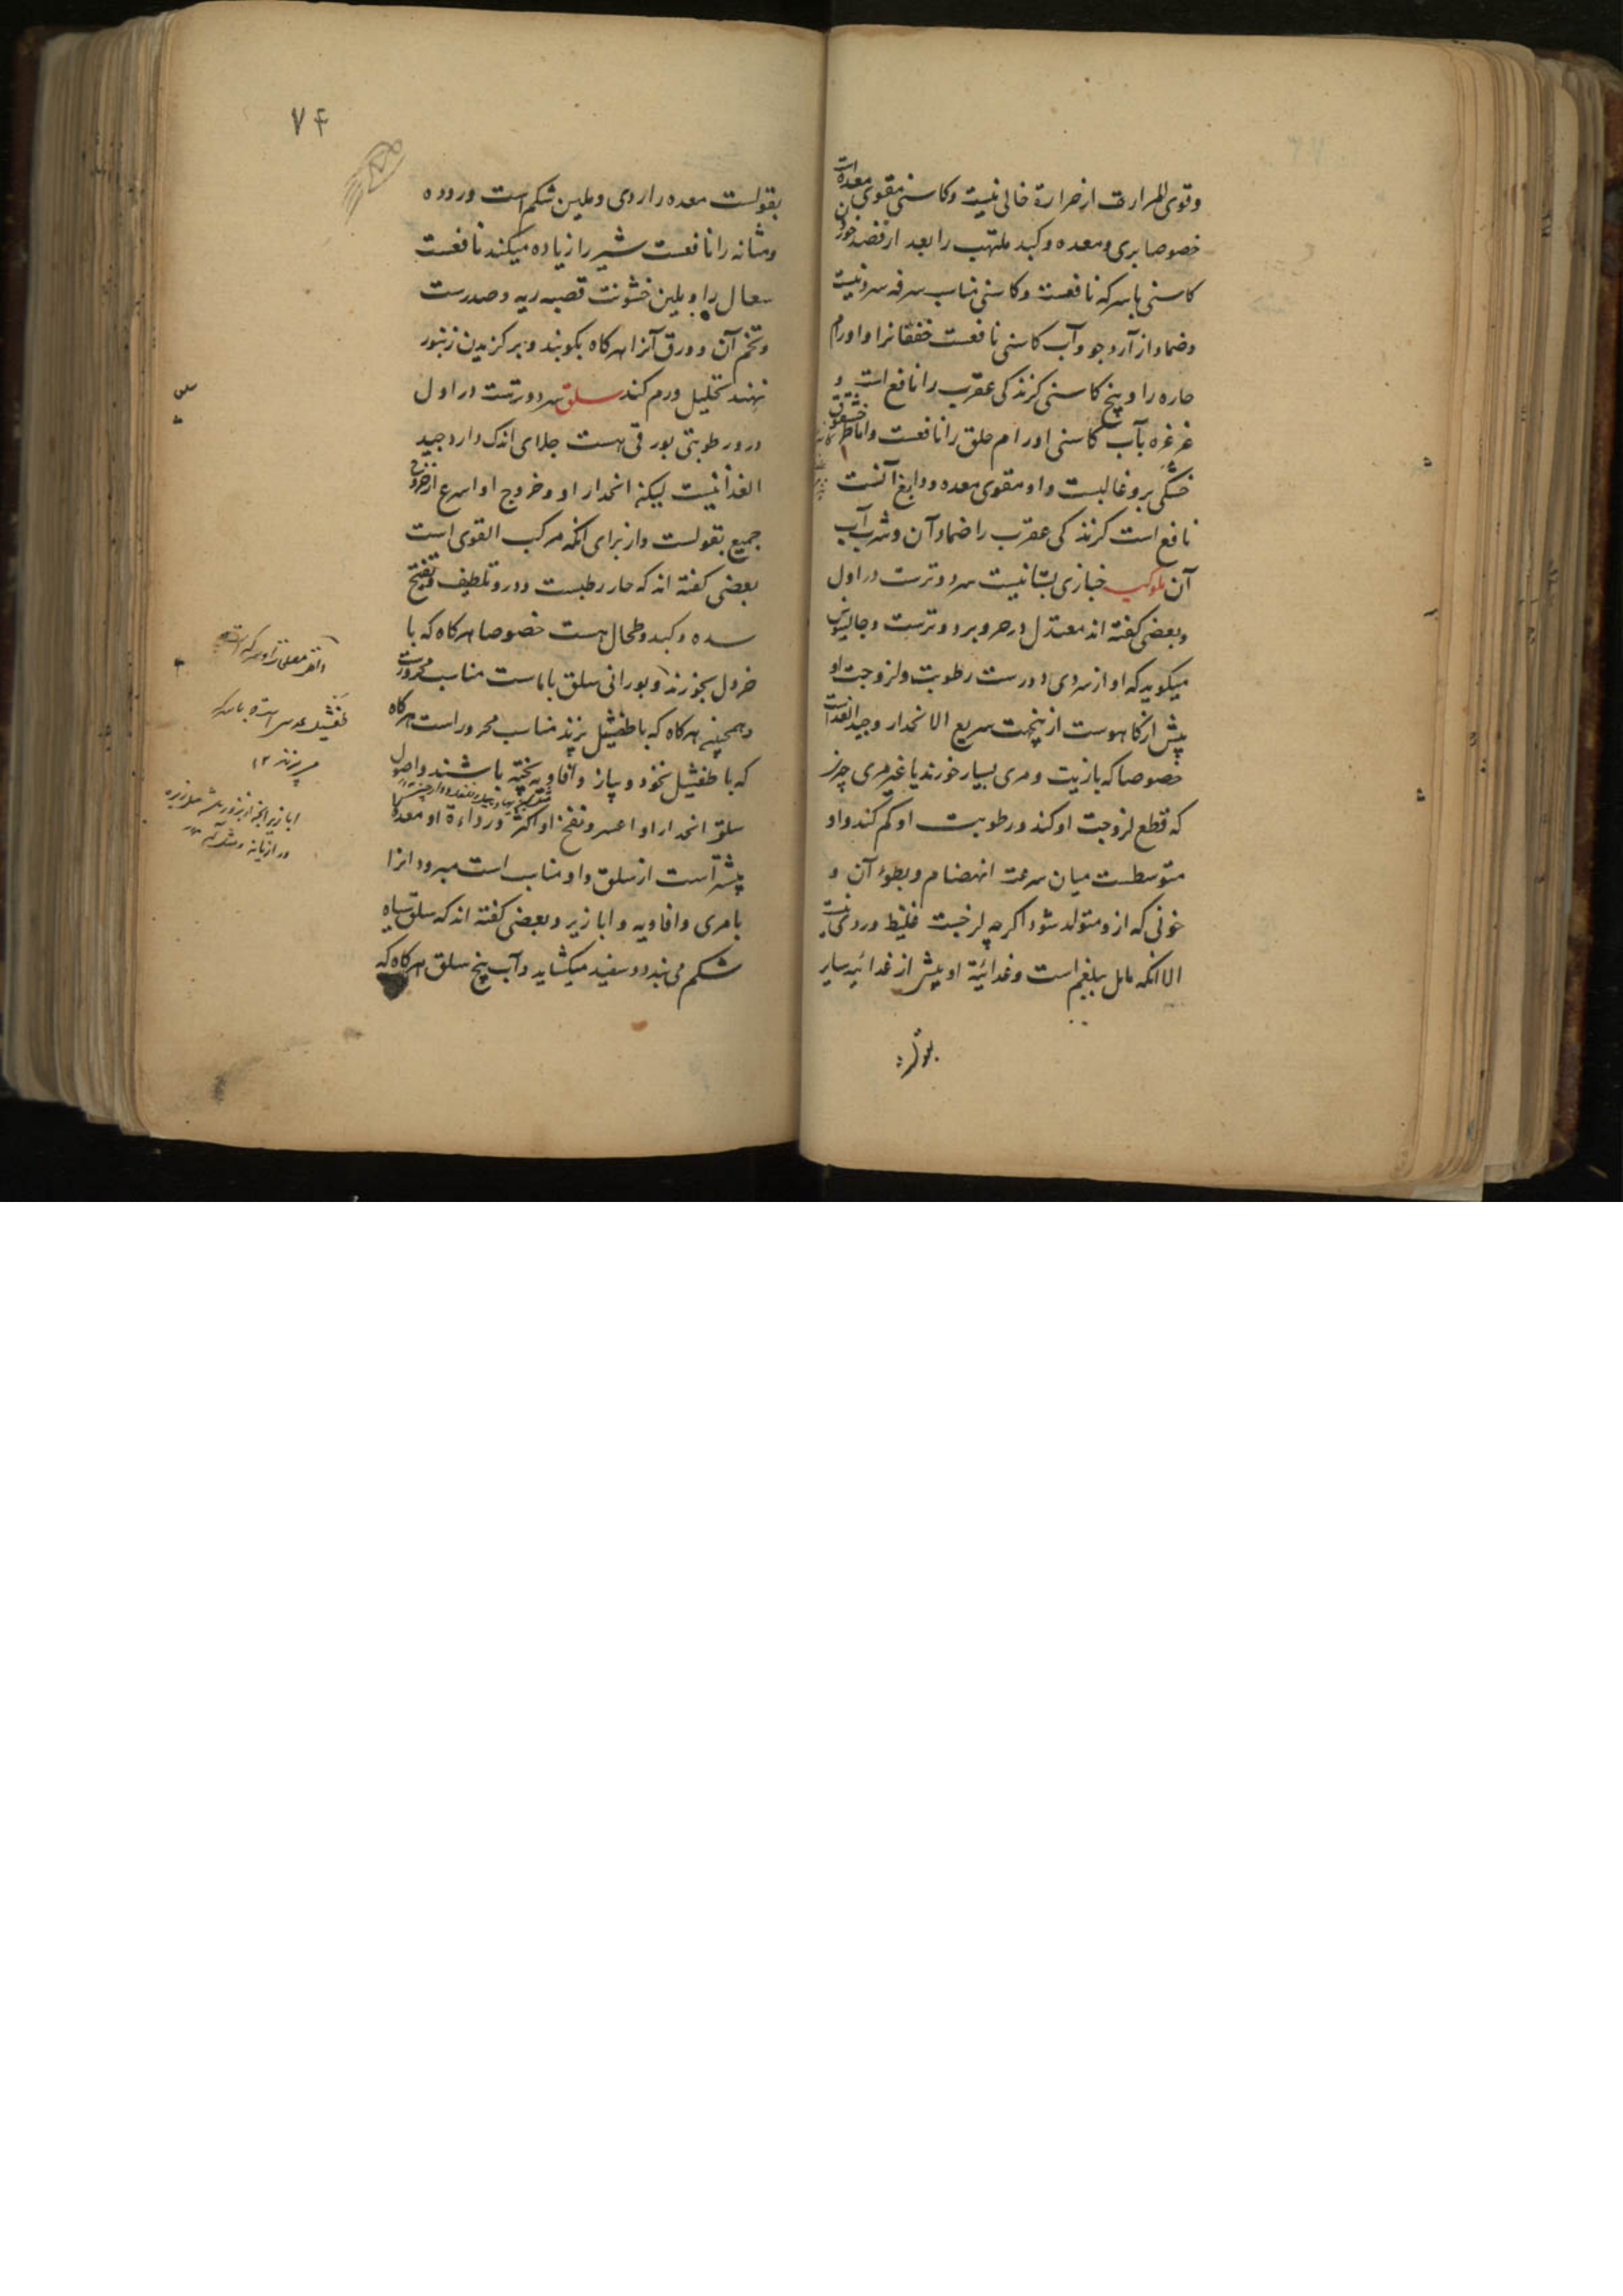 وقوی المرارت از حرارة خالی نیست وکاسنی مقوی معده است
خصوصا بری ومعده وکبد ملتهب را بعد از فصد خوردن
کاسنی باسرکه نافعست وکاسنی مناسب سرفه سرد نیست
وضماد از آرد جو وآب کاسنی نافعست خفقانرا واورام
حاره را وبیخ کاسنی کزندکی عقرب را نافع است و
غرغره بآب کاسنی اورام حلق را نافعست واما
خشکی برو غالبست واو مقوی معده ودابغ آنست
نافع است کزندکی عقرب را ضماد آن وشرب آب
آن ملوکیه خبازی بستانیست سرد وترست در اول
وبعضی کفته اند معتدل در حر وبرد وترست وجالینوس
میکوید که او از سردی دورست رطوبت ولزوجت او
بیش از کاهوست از ینجهت سریع الانحدار وجید الغذاست
خصوصا که بازیت ومری بسیار خورند یا غیر مری چیز
که قطع لزوجت او کند ورطوبت او کم کند واو
متوسطست میان سرعت انهضام وبطوء آن و
خونی که ازو متولد شود اکرچه لزجست غلیظ وردی نیست
الا انکه مایل ببلغم است وغذائیة او بیشتر از غذائیه سایر
بقولست
۷۴
بقولست معده را ردی وملین شکم است وروده
ومثانه را نافعست شیر را زیاده میکند نافعست
سعال را وملین خشونت قصبه ریه وصدرست
وتخم آن وورق آنرا هرکاه بکوبند وبر کزیدن زنبور
نهند تحلیل ورم کند سلق سرد وترست در اول
ودرو رطوبتی بورقی هست جلای اندک دارد وجید
الغذا نیست لیکن انحدار او وخروج او اسرع از خروج
جمیع بقولست واز برای انکه مرکب القوی است
بعضی کفته اند که حار رطبست ودرو تلطیف وتفتیح
سده وکبد وطحال هست خصوصا هرکاه که با
خردل بخورند وبورانی سلق باماست مناسب محرورست
وهمچنین هرکاه که باطفشیل پزند مناسب محرور است هرکاه
که با طفشیل نخود وپیاز وافاویه پخته باشند واصول
سلق انحدار او اعسر ونفخ او اکثر ورداءة او معده را
بیشتر است از سلق واو مناسب است مبرود انرا
بامری وافاویه وابازیر وبعضی کفته اند که سلق سیاه
شکم می بندد وسفید میکشاید وآب بیخ سلق هرکاه که
طفشیل عدس است باسرکه
می پزند ۱۲